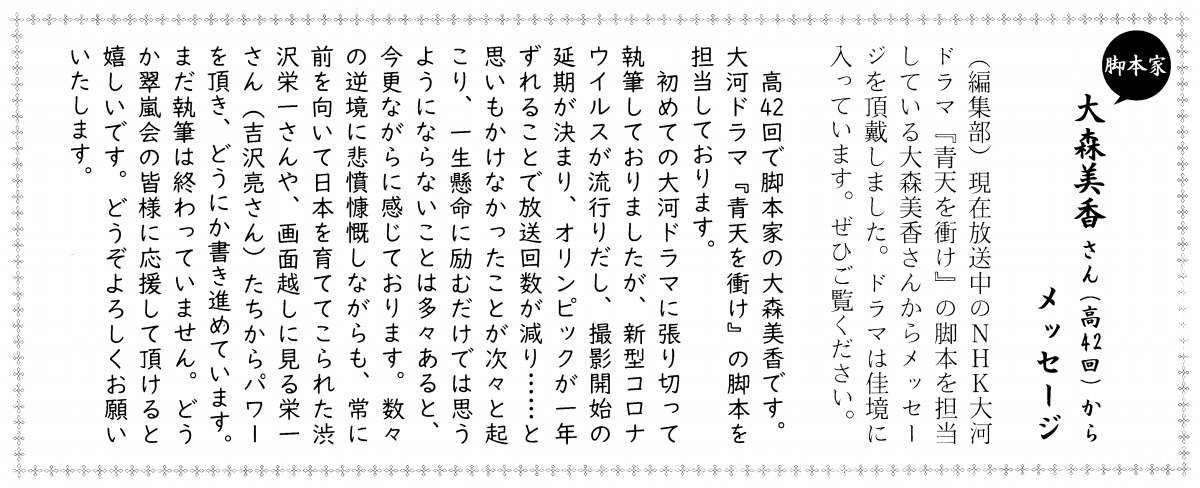 脚本家
大森美香さん（高42回）から
メッセージ
（編集部）現在放送中のＮＨＫ大河
ドラマ『青天を衝け』の脚本を担当
している大森美香さんからメッセー
ジを頂戴しました。ドラマは佳境に
入っています。ぜひご覧ください。
高42回で脚本家の大森美香です。
大河ドラマ『青天を衝け』の脚本を
担当しております。
初めての大河ドラマに張り切って
執筆しておりましたが、新型コロナ
ウイルスが流行りだし、撮影開始の
延期が決まり、オリンピックが一年
ずれることで放送回数が減り……と
思いもかけなかったことが次々と起
こり、一生懸命に励むだけでは思う
ようにならないことは多々あると、
今更ながらに感じております。数々
の逆境に悲憤慷慨しながらも、常に
前を向いて日本を育ててこられた渋
沢栄一さんや、画面越しに見る栄一
さん（吉沢亮さん）たちからパワー
を頂き、どうにか書き進めています。
まだ執筆は終わっていません。どう
か翠嵐会の皆様に応援して頂けると
嬉しいです。どうぞよろしくお願い
いたします。